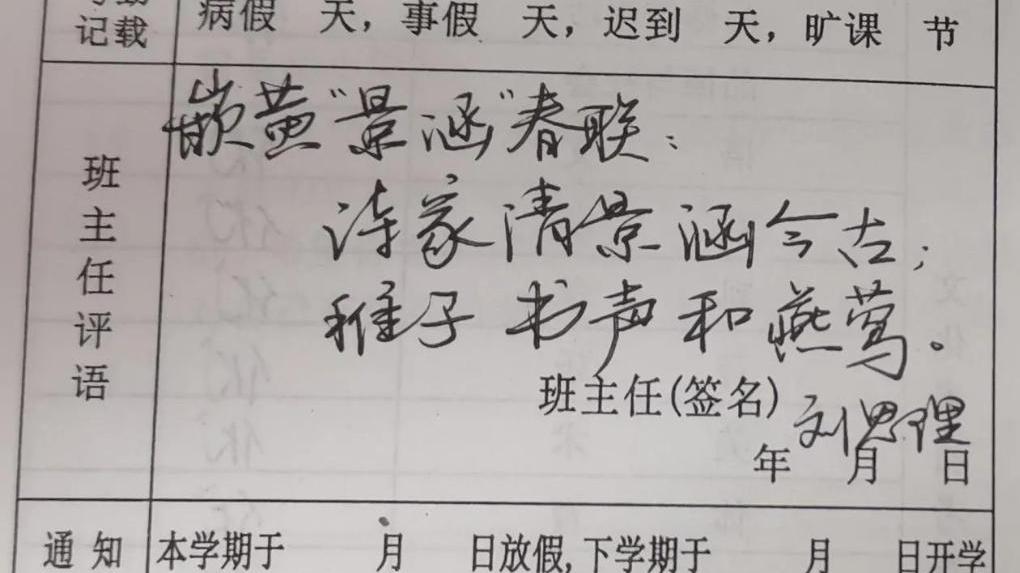 记载
病假 天，事假 天，迟到 天，旷课 节
班主任评语
嵌黄"景涵"春联：
诗家清景涵今古；
稚子书声和燕莺。
班主任(签名) 刘思理
年 月 日
通知
本学期于 月 日放假,下学期于 月 日开学